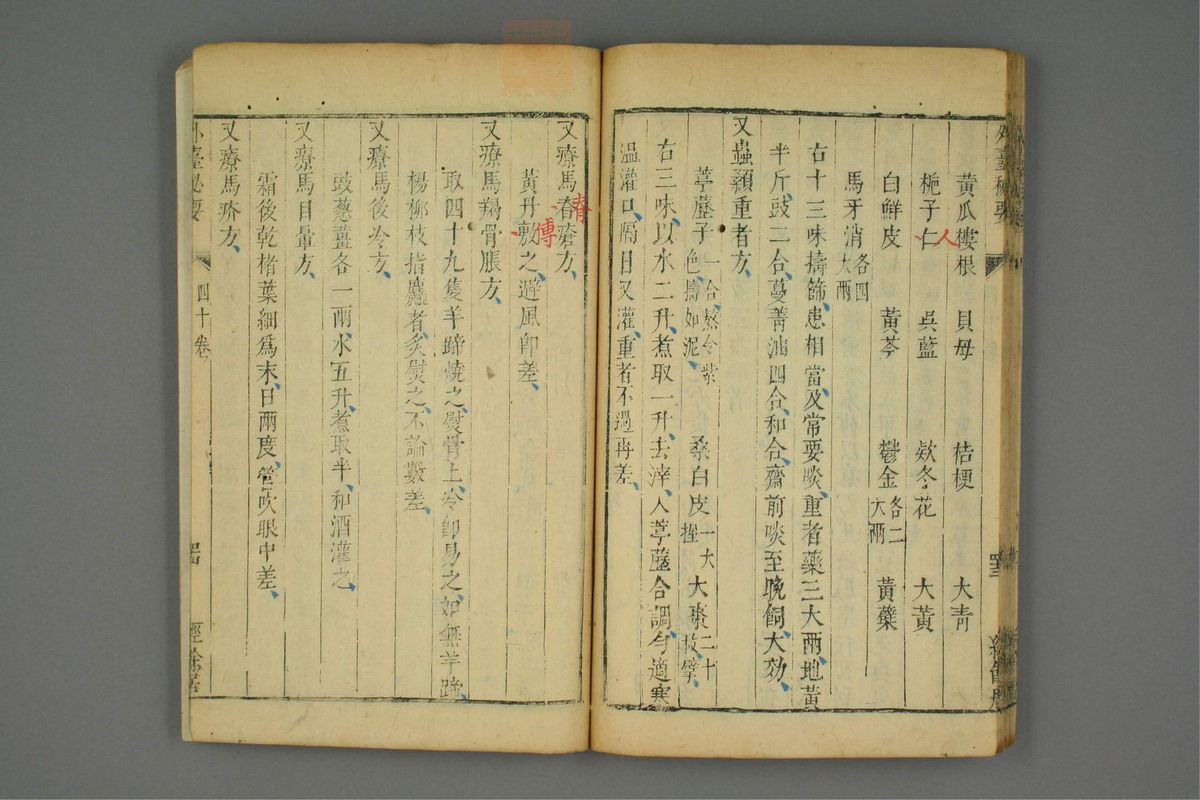 外臺秘要
黃瓜樓根 貝母 桔梗 大青
梔子仁 人 吳藍 欵冬花 大黃
白鮮皮 黃芩 鬱金各二大兩 黃蘗
馬牙消各四大兩
右十三味擣篩患相當及常要啖重者藥三大兩地黃
半斤豉二合蔓菁油四合和合齋前啖至晚飼大効
又蟲顙重者方
葶藶子一合熬令紫色擣如泥 桑白皮一大握 大棗二十枚擘
右三味以水二升煮取一升去滓入葶藶合調勻適寒
溫灌口隔日又灌重者不過再差
又療馬脊瘡方 脊
黃丹敷之避風卽差 傅
又療馬羯骨脹方
取四十九隻羊蹄燒之熨骨上冷卽易之如無羊蹄
楊柳枝指麤者炙熨之不論數差
又療馬後冷方
豉葱薑各一兩水五升煮取半和酒灌之
又療馬目暈方
霜後乾楮葉細爲末日兩度管吹眼中差
又療馬疥方
外臺秘要 四十卷 經餘居